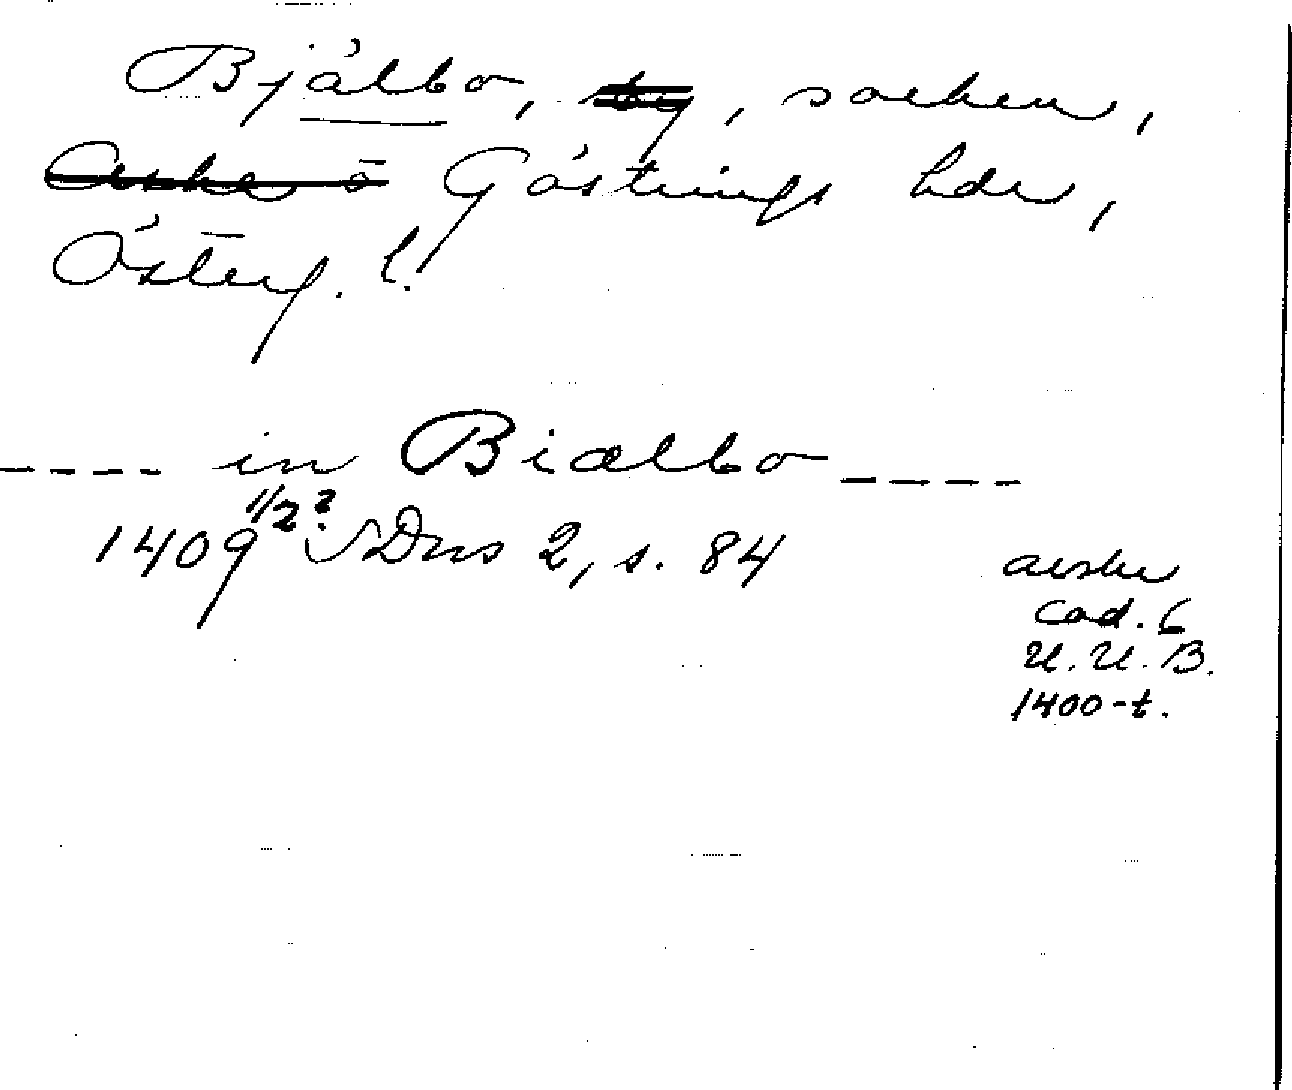 Bjälbo, by, socken,
Aska ö Göstrings hdr,
Österg. l.
---- in Biælbo ----
1409 1/2? SDns 2, s. 84
avskr
cod. 6
U. U. B.
1400-t.